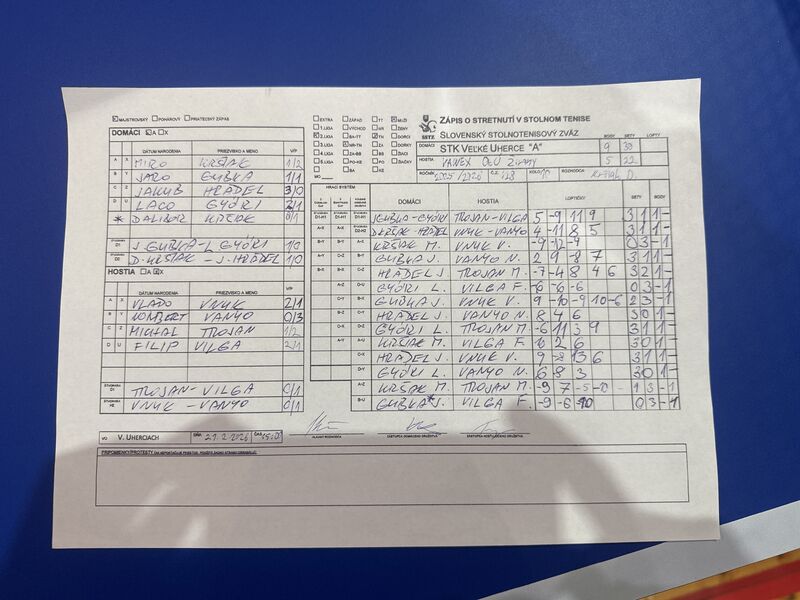 MAJSTROVSKÝ POHÁROVÝ PRIATEĽSKÝ ZÁPAS
DOMÁCI A X
DÁTUM NARODENIA PRIEZVISKO A MENO V/P
A X MIRO KRŠIAK 1/2
B Y JARO GUBKA 1/1
C Z JAKUB HRÁDEL 3/0
D U LACO GYÖRI 2/1
* DALIBOR KRŠIAK 0/1
ŠTVORHRA D1 J. GUBKA - L. GYÖRI 1/0
ŠTVORHRA D2 D. KRŠIAK - J. HRÁDEL 1/0
HOSTIA A X
DÁTUM NARODENIA PRIEZVISKO A MENO V/P
A X VLADO VNUK 2/1
B Y NORBERT VANYO 0/3
C Z MICHAL TROJAN 1/2
D U FILIP VILGA 2/1
ŠTVORHRA TROJAN - VILGA 0/1
ŠTVORHRA H2 VNUK - VANYO 0/1
EXTRA ZÁPAD TT MUŽI
1.LIGA VÝCHOD NR ŽENY
2.LIGA BA-TT TN DORCI
3.LIGA NR-TN ZA DORKY
4.LIGA ZA-BB BB ŽIACI
5.LIGA PO-KE PO ŽIAČKY
6.LIGA BA KE
MO KE BA
SSTZ
ZÁPIS O STRETNUTÍ V STOLNOM TENISE
SLOVENSKÝ STOLNOTENISOVÝ ZVÄZ
BODY SETY LOPTY
DOMÁCI STK VEĽKÉ UHERCE "A" 9 30
HOSTIA VANEX 5 22
ROČNÍK 2025/2026 Č.Z. 128 KOLO ROZHODCA KRŠIAK D.
HRACÍ SYSTÉM
DOMÁCI HOSTIA LOPTIČKY SETY BODY
D1-H1 D1-H1 J. GUBKA - GYÖRI TROJAN - VILGA 5 -9 11 9 3 1 1 -
A-X D2-H2 D. KRŠIAK - HRÁDEL VNUK - VANYO 4 -11 8 5 3 1 1 -
B-Y A-X KRŠIAK M. VNUK V. -9 -12 -9 0 3 - 1
A-Y C-Z B-Y GUBKA J. VANYO N. 2 9 -8 7 3 1 1 -
B-X B-X C-Z HRÁDEL J. TROJAN M. -7 -4 8 4 6 3 2 1 -
A-Z D-U GYÖRI L. VILGA F. -6 -6 -6 0 3 - 1
C-Y B-X GUBKA J. VNUK V. 9 -10 -9 10 -6 2 3 - 1
B-Z C-Y HRÁDEL J. VANYO N. 8 4 6 3 0 1 -
C-X D-Z GYÖRI L. TROJAN M. -6 11 3 9 3 1 1 -
A-Y A-U KRŠIAK M. VILGA F. 6 2 6 3 0 1 -
C-X HRÁDEL J. VNUK V. 9 -8 13 6 3 1 1 -
D-Y GYÖRI L. VANYO N. 6 8 3 3 0 1 -
A-Z KRŠIAK M. TROJAN M. -9 7 -5 -10 1 3 - 1
B-U GUBKA J.* VILGA F. -9 -6 -10 0 3 - 1
VO V. UHERCIACH DŇA 21.2.2026 ČAS
HLAVNÝ ROZHODCA ZÁSTUPCA DOMÁCEHO DRUŽSTVA ZÁSTUPCA HOSŤUJÚCEHO DRUŽSTVA
PRIPOMIENKY/PROTESTY (AK NEPOSTAČUJE PRIESTOR, POUŽITE ZADNÚ STRANU FORMULÁRA):